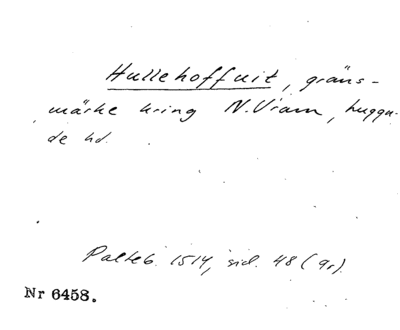 Hullehoffuit, gräns-
märke kring N. Vram, luggu-
de hd.
Palteb. 1514, sid. 48 (9r).
Nr 6458.